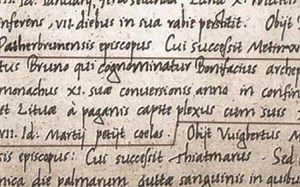 Id. Ianuarij
inferens, VII. diebus in sua rabie perstitit. Obijt
Patherbrunensis episcopus. Cui successit Meinw
tus Bruno qui cognominatur Bonifacius arche
monachus XI. suae conversionis anno in confin
et Lituae à paganis capite plexus cum suis
VII. Id. Martij petijt coelos. Obijt Vuigbertus M
sis episcopus: Cui successit Thiatmarus. Sed
nica die palmarum guttae sanguinis in quibus